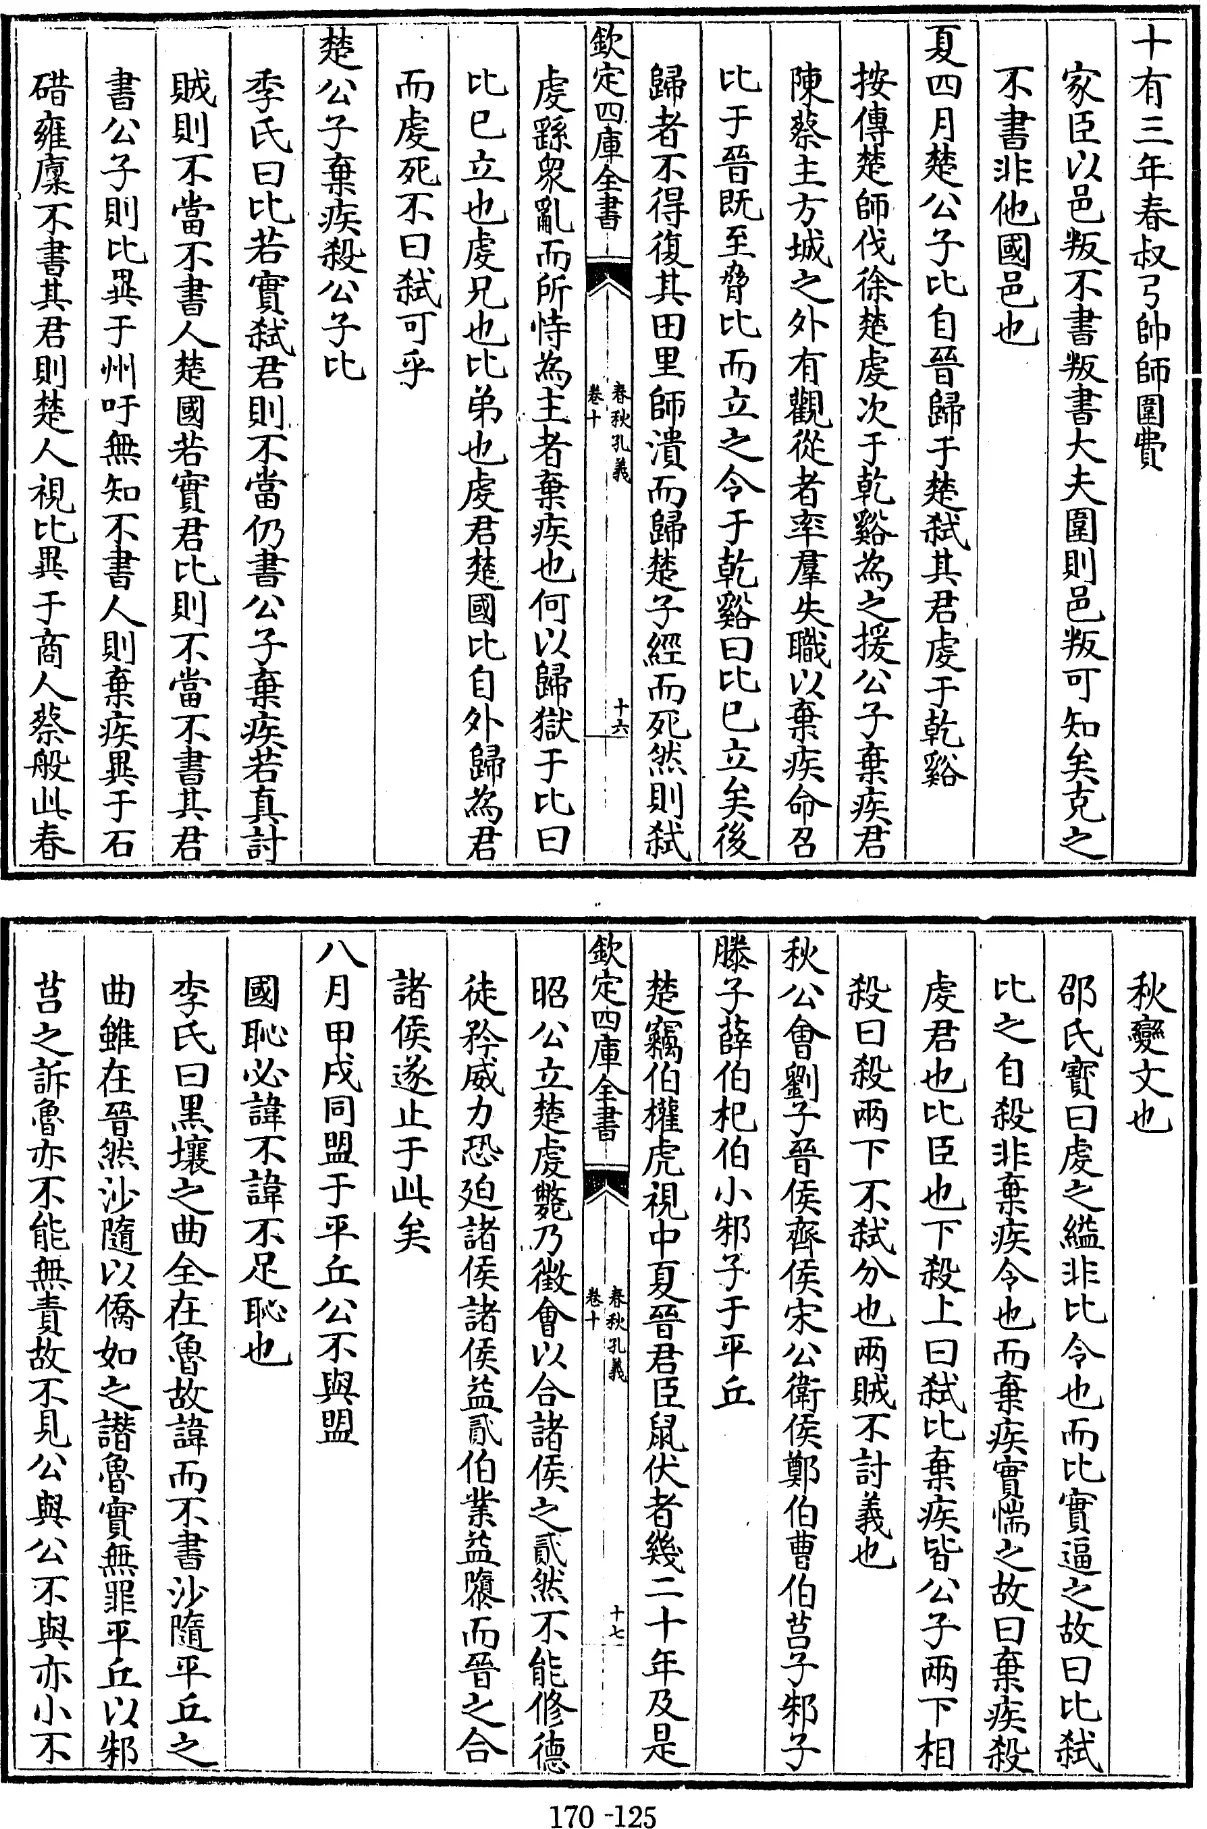 十有三年春叔弓帥師圍費
家臣以邑叛不書叛書大夫圍則邑叛可知矣克之
不書非他國邑也
夏四月楚公子比自晉歸于楚弑其君虔于乾谿
按傳楚師伐徐楚虔次于乾谿為之援公子棄疾君
陳蔡主方城之外有觀從者率羣失職以棄疾命召
比于晉既至脅比而立之令于乾谿曰比已立矣後
歸者不得復其田里師潰而歸楚子經而死然則弑
欽定四庫全書
春秋孔義
卷十
十六
虔繇衆亂而所恃為主者棄疾也何以歸獄于比曰
比已立也虔兄也比弟也虔君楚國比自外歸為君
而虔死不曰弑可乎
楚公子棄疾殺公子比
季氏曰比若實弑君則不當仍書公子棄疾若真討
賊則不當不書人楚國若實君比則不當不書其君
書公子則比異于州吁無知不書人則棄疾異于石
碏雍廩不書其君則楚人視比異于商人蔡般此春
秋變文也
邵氏寳曰虔之縊非比令也而比實逼之故曰比弑
比之自殺非棄疾令也而棄疾實惴之故曰棄疾殺
虔君也比臣也下殺上曰弑比棄疾皆公子兩下相
殺曰殺兩下不弑分也兩賊不討義也
秋公會劉子晉侯齊侯宋公衛侯鄭伯曹伯莒子邾子
滕子薛伯杞伯小邾子于平丘
楚竊伯權虎視中夏晉君臣鼠伏者幾二十年及是
欽定四庫全書
春秋孔義
卷十
十七
昭公立楚虔斃乃徵會以合諸侯之貳然不能修德
徒矜威力恐廹諸侯諸侯益貳伯業益隳而晉之合
諸侯遂止于此矣
八月甲戌同盟于平丘公不與盟
國恥必諱不諱不足恥也
李氏曰黑壤之曲全在魯故諱而不書沙隨平丘之
曲雖在晉然沙隨以僑如之譖魯實無罪平丘以邾
莒之訴魯亦不能無責故不見公與公不與亦小不
170-125